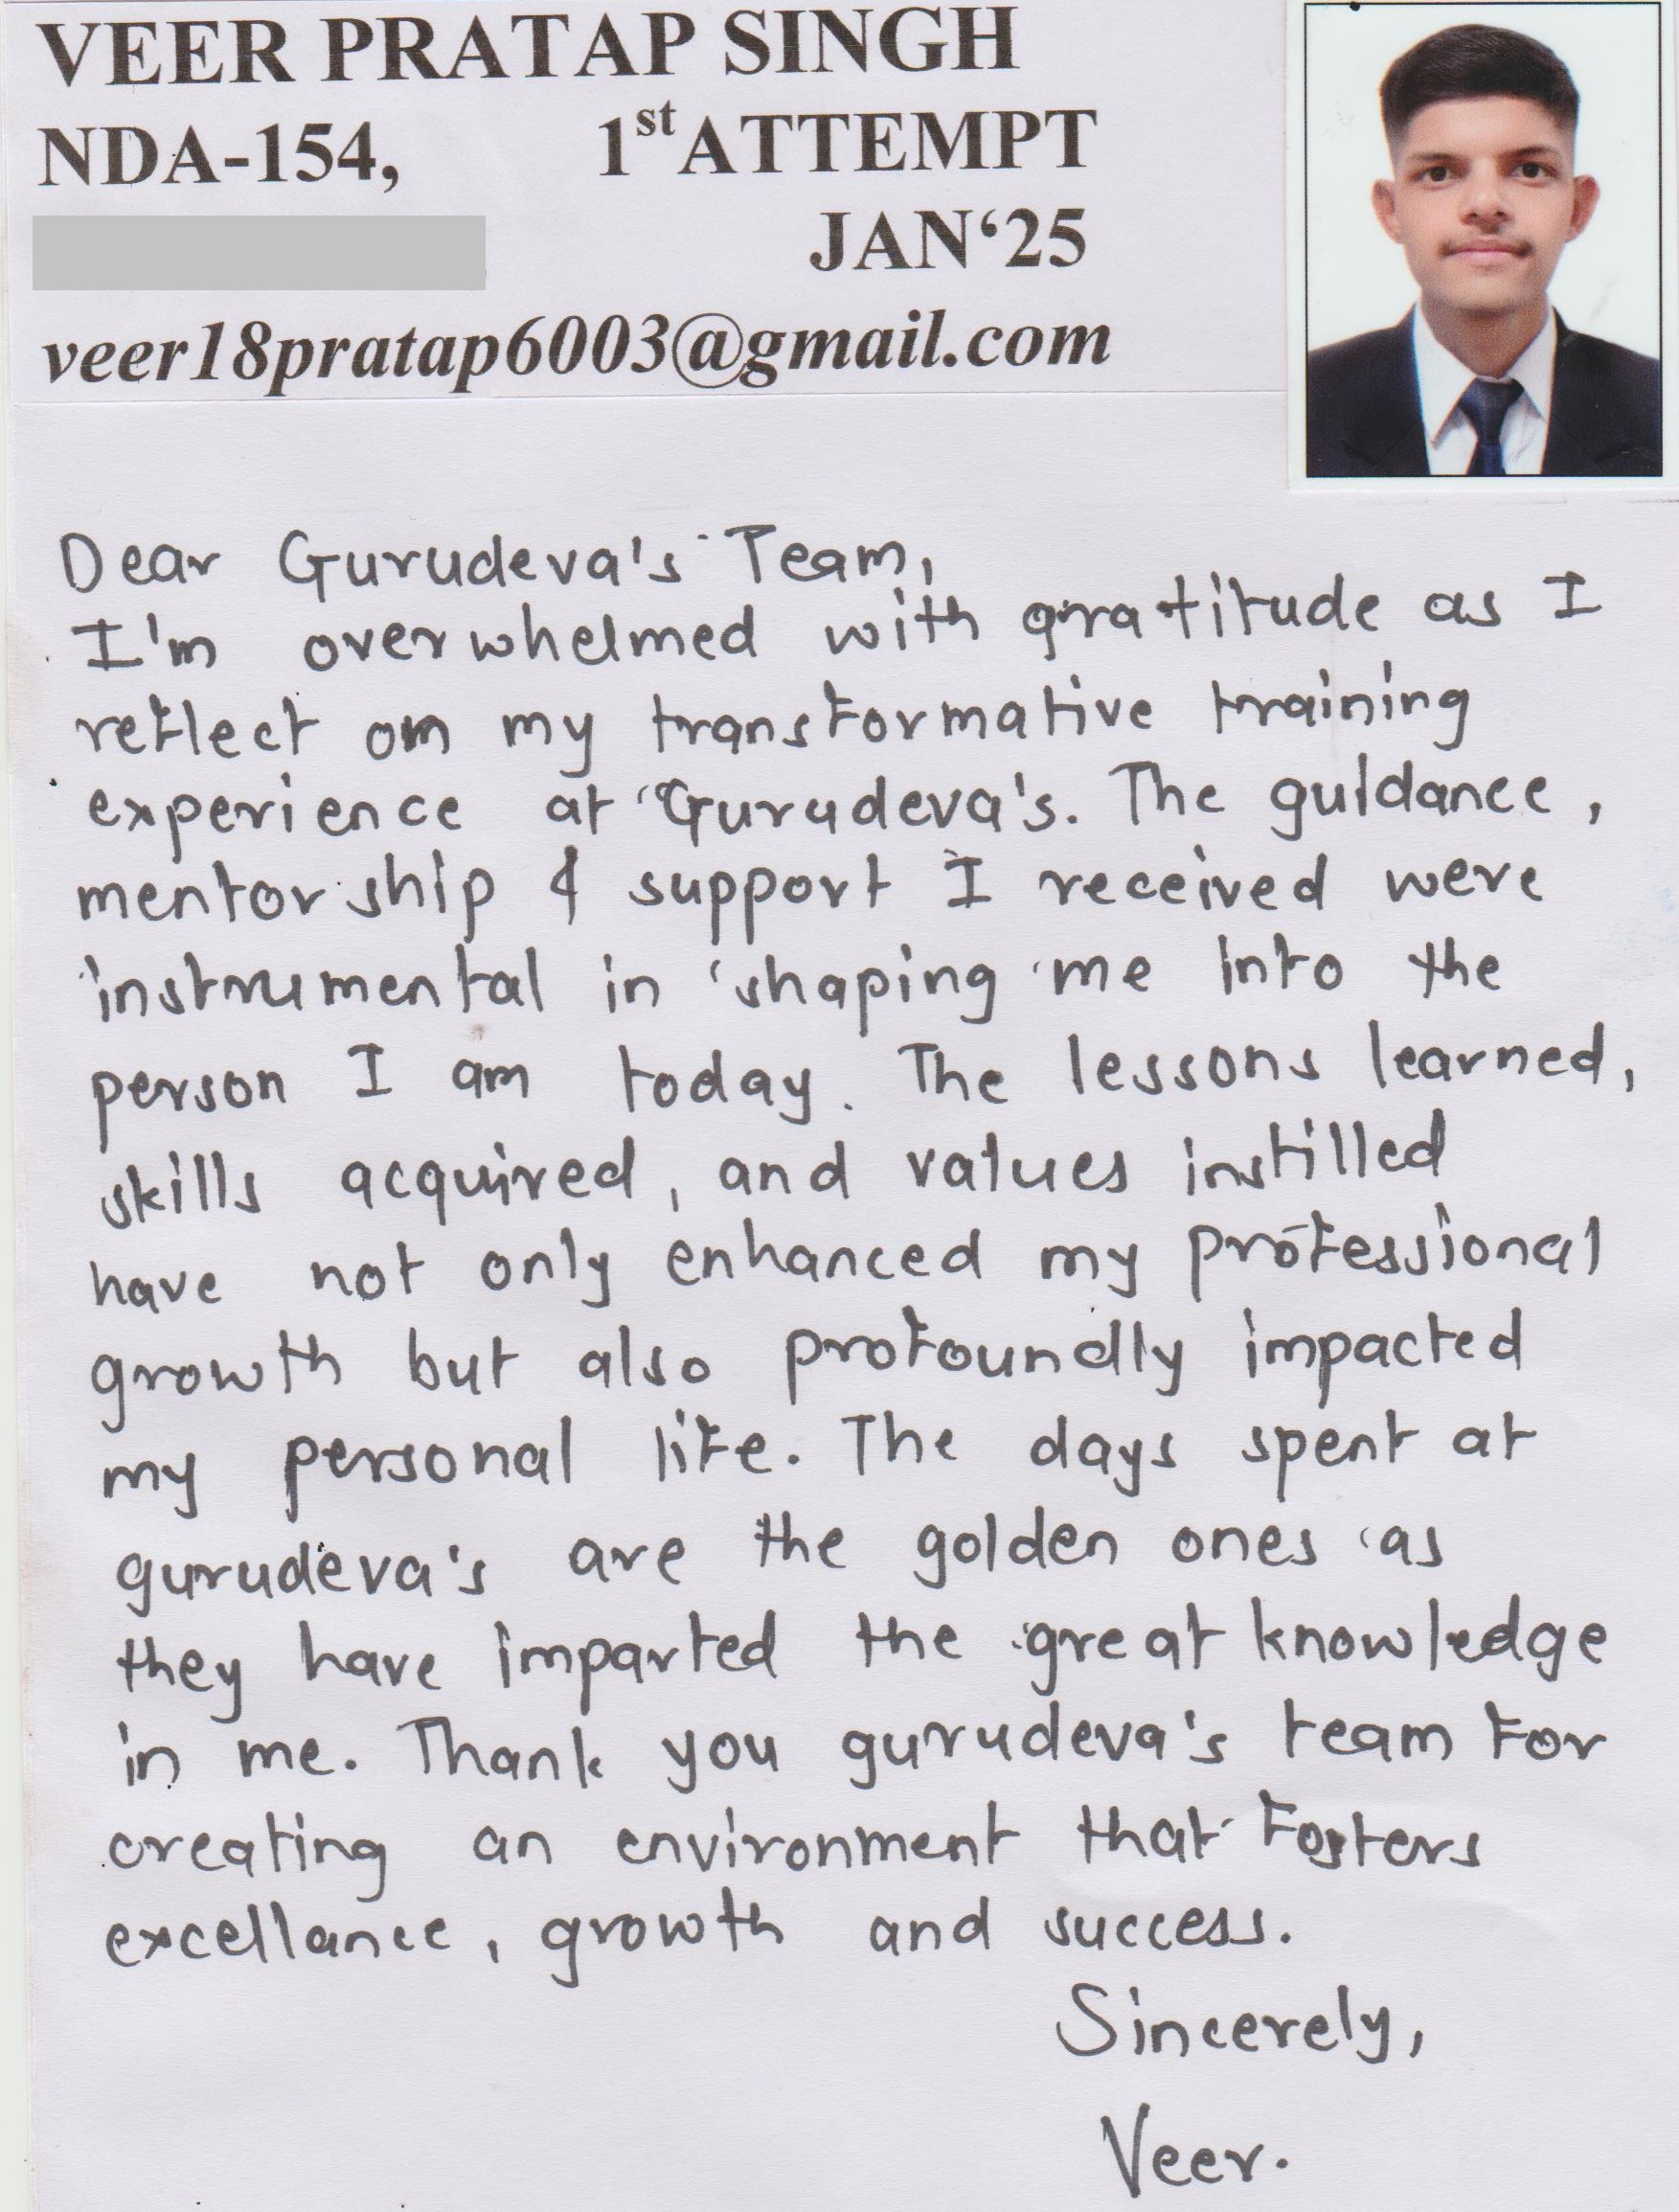 VEER PRATAP SINGH
NDA-154, 1st ATTEMPT
JAN‘25
veer18pratap6003@gmail.com
Dear Gurudeva's Team,
I'm overwhelmed with gratitude as I
reflect on my transformative training
experience at Gurudeva's. The guidance,
mentorship & support I received were
instrumental in shaping me into the
person I am today. The lessons learned,
skills acquired, and values instilled
have not only enhanced my professional
growth but also profoundly impacted
my personal life. The days spent at
gurudeva's are the golden ones as
they have imparted the great knowledge
in me. Thank you gurudeva's team for
creating an environment that fosters
excellance, growth and success.
Sincerely,
Veer.